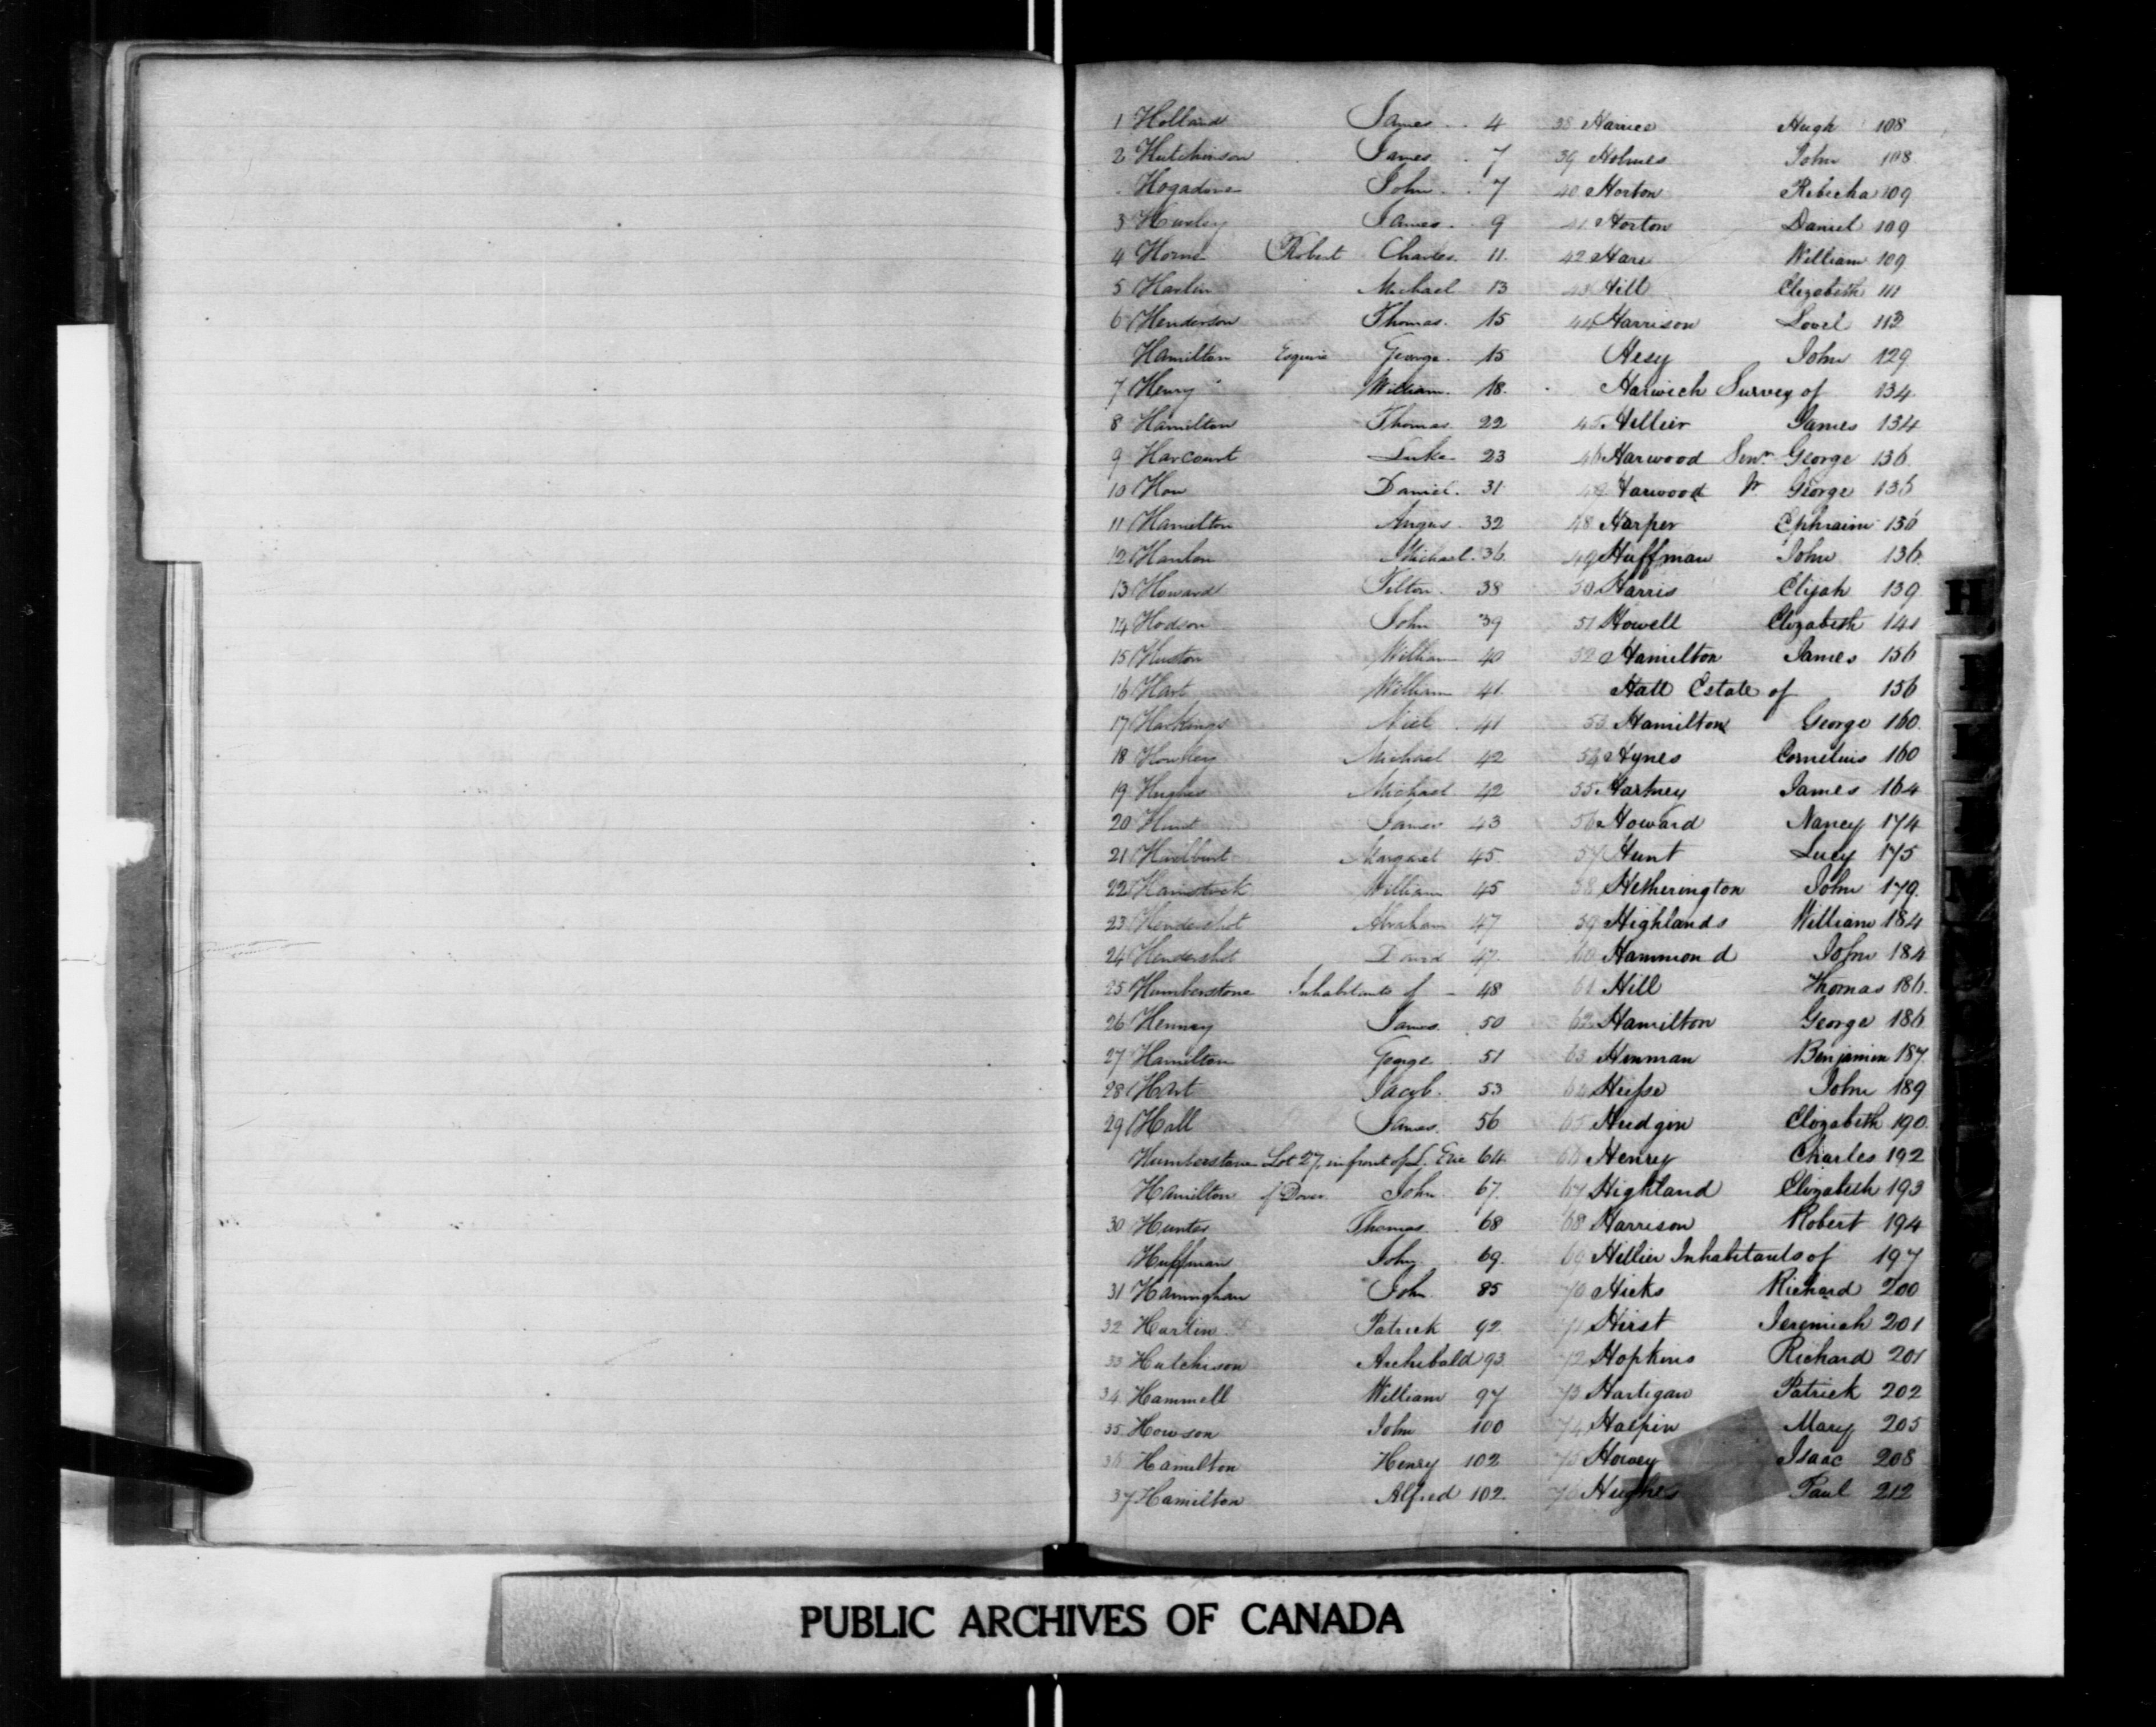 1 Holland James 4
2 Hutchinson James 7
Hogadone John 7
3 James 9
4 Horne Robert Charles 11
5 Harlin Michael 13
6 Henderson Thomas 15
Hamilton Esquire George 15
7 Henry William 18
8 Hamilton Thomas 22
9 Harcourt Luke 23
10 How Daniel 31
11 Hamilton Angus 32
12 Hanlon Michael 36
13 Howard Tilton 38
14 Hodson John 39
15 Huston William 40
16 Hart William 41
17 41
18 Michael 42
19 Hughes Michael 42
20 James 43
21 Margaret 45
22 William 45
23 Hendershot Abraham 47
24 Hendershot David 47
25 Humberstone Inhabitants of 48
26 James 50
27 Hamilton George 51
28 Hart Jacob 53
29 Hall James 56
Humberstone Lot 27, in front of L. Erie 64
Hamilton of Dover John 67
30 Hunter Thomas 68
Huffman John 69
31 John 85
32 Hartin Patrick 92
33 Hutchison Archibald 93
34 Hammell William 97
35 Howson John 100
36 Hamilton Henry 102
37 Hamilton Alfred 102
38 Hugh 108
39 Holmes John 108
40 Horton Rebecka 109
41 Horton Daniel 109
42 Hare William 109
43 Hill Elizabeth 111
44 Harrison Lovel 112
Hesy John 129
Harwich Survey of 134
45 Hillier James 134
46 Harwood Senr George 136
47 Harwood Jr George 136
48 Harper Ephraim 136
49 Huffman John 136
50 Harris Elijah 139
51 Howell Elizabeth 141
52 Hamilton James 156
Hall Estate of 156
53 Hamilton George 160
54 Hynes Cornelius 160
55 Hartney James 164
56 Howard Nancy 174
57 Hunt Lucy 175
58 Hetherington John 179
59 Highlands William 184
60 Hammond John 184
61 Hill Thomas 186
62 Hamilton George 186
63 Hinman Benjamin 187
64 John 189
65 Hudgin Elizabeth 190
66 Henry Charles 192
67 Highland Elizabeth 193
68 Harrison Robert 194
69 Hillier Inhabitants of 197
70 Hicks Richard 200
71 Hirst Jeremiah 201
72 Hopkins Richard 201
73 Hartigan Patrick 202
74 Halpin Mary 205
75 Howey Isaac 208
76 Hughes Paul 212
H
M
PUBLIC ARCHIVES OF CANADA